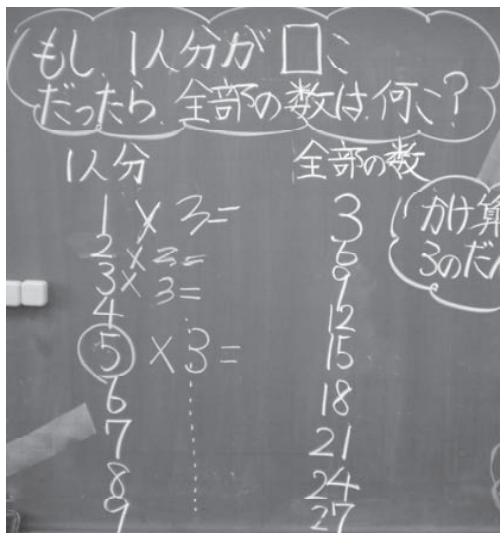 もし、1人分が□こ
だったら、全部の数は、何こ?
1人分 全部の数
1×3= 3
2×3= 6
3×3= 9
4 12
5×3= 15
6 18
7 21
8 24
9 27
かけ算
3のだん